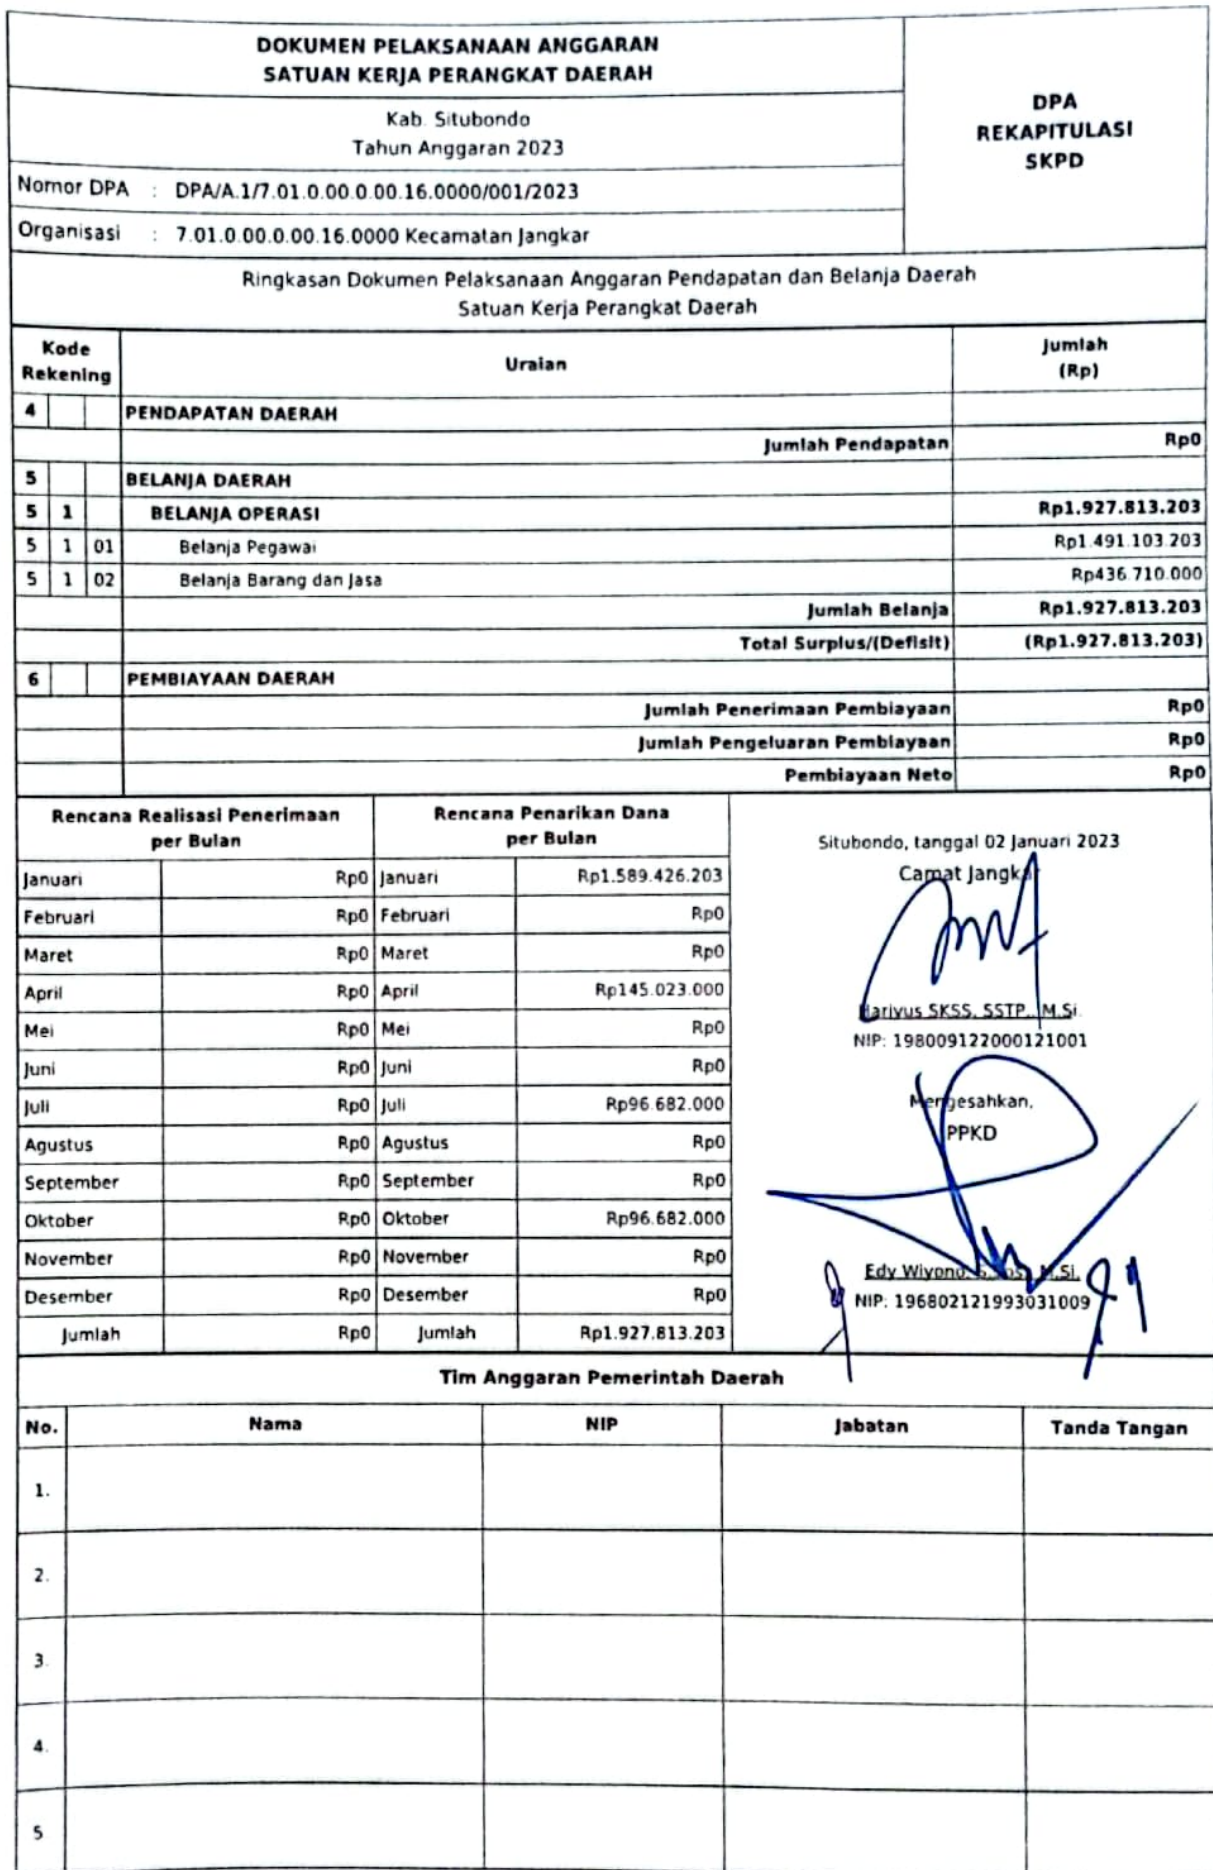 DOKUMEN PELAKSANAAN ANGGARAN
SATUAN KERJA PERANGKAT DAERAH
DPA
REKAPITULASI
SKPD
Kab. Situbondo
Tahun Anggaran 2023
Nomor DPA : DPA/A.1/7.01.0.00.0.00.16.0000/001/2023
Organisasi : 7.01.0.00.0.00.16.0000 Kecamatan Jangkar
Ringkasan Dokumen Pelaksanaan Anggaran Pendapatan dan Belanja Daerah
Satuan Kerja Perangkat Daerah
Kode Rekening Uraian Jumlah (Rp)
4 PENDAPATAN DAERAH
Jumlah Pendapatan Rp0
5 BELANJA DAERAH
5 1 BELANJA OPERASI Rp1.927.813.203
5 1 01 Belanja Pegawai Rp1.491.103.203
5 1 02 Belanja Barang dan Jasa Rp436.710.000
Jumlah Belanja Rp1.927.813.203
Total Surplus/(Defisit) (Rp1.927.813.203)
6 PEMBIAYAAN DAERAH
Jumlah Penerimaan Pembiayaan Rp0
Jumlah Pengeluaran Pembiayaan Rp0
Pembiayaan Neto Rp0
Rencana Realisasi Penerimaan per Bulan Rencana Penarikan Dana per Bulan
Januari Rp0 Januari Rp1.589.426.203
Februari Rp0 Februari Rp0
Maret Rp0 Maret Rp0
April Rp0 April Rp145.023.000
Mei Rp0 Mei Rp0
Juni Rp0 Juni Rp0
Juli Rp0 Juli Rp96.682.000
Agustus Rp0 Agustus Rp0
September Rp0 September Rp0
Oktober Rp0 Oktober Rp96.682.000
November Rp0 November Rp0
Desember Rp0 Desember Rp0
Jumlah Rp0 Jumlah Rp1.927.813.203
Situbondo, tanggal 02 Januari 2023
Camat Jangkar
Hariyus SKSS, SSTP., M.Si.
NIP: 198009122000121001
Mengesahkan,
PPKD
Edy Wiyono, M.Si.
NIP: 196802121993031009
Tim Anggaran Pemerintah Daerah
No. Nama NIP Jabatan Tanda Tangan
1.
2.
3.
4.
5